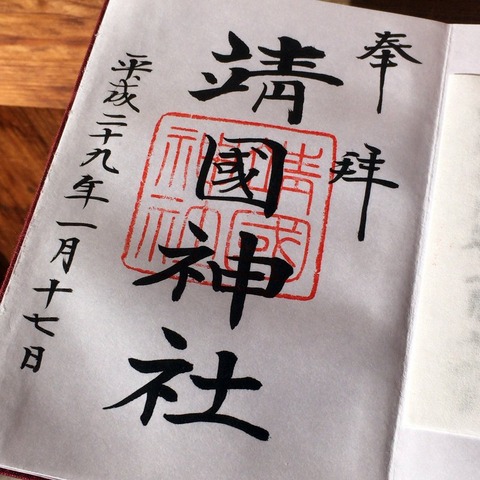 奉拝
靖國神社
靖國
神社
平成二十九年一月十七日